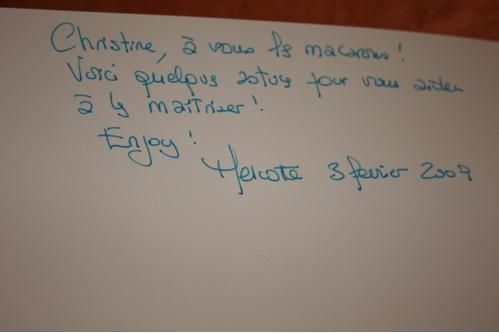 Christine, à vous les macarons !
Voici quelques astuces pour vous aider
à les maîtriser !
Enjoy !
Mercotte 3 février 2009